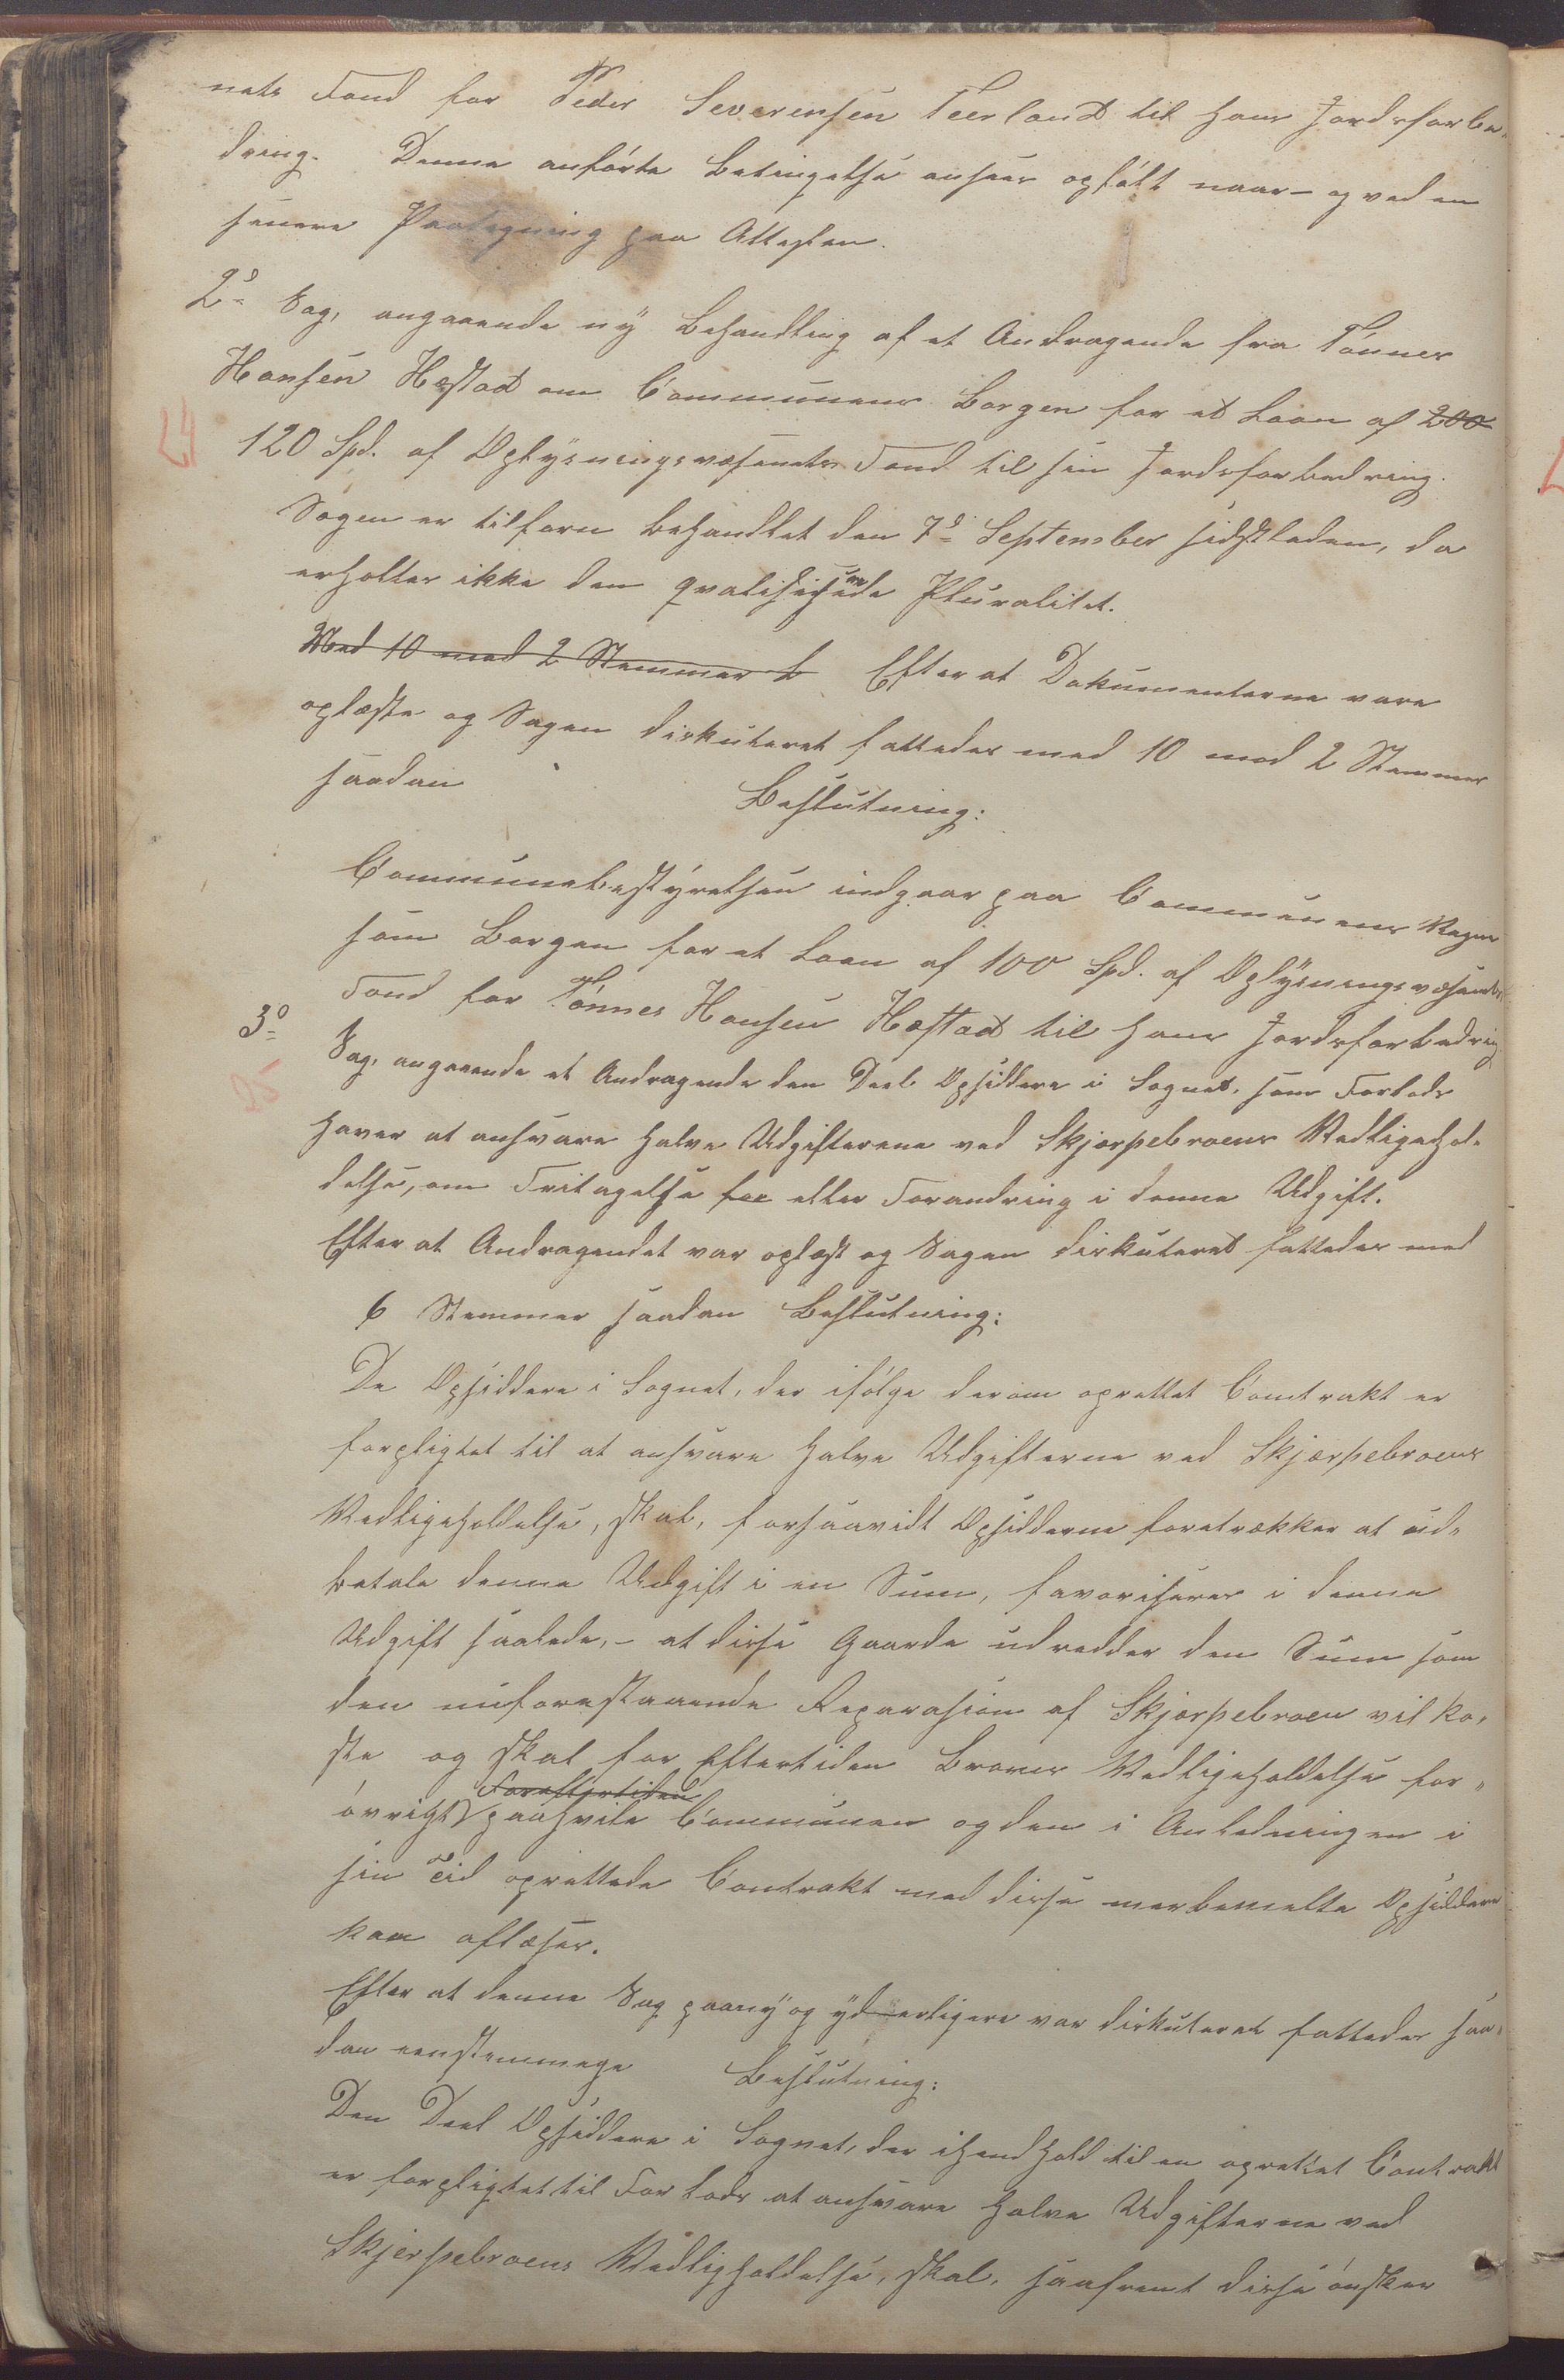 nets Fond for Peder Severensen Teerland til hans Jordsforbe-
dring. Denne anførte Betingelse ansees opfølt naar – og ved en
senere Paategning paa Attesten.
2o Sag, angaaende ny Behandling af et Andragende fra Tønnes
Hansen Hæstad om Communens Borgen for et Laan af 200
24 120 Spd. af Oplysningsvæsenets Fond til sin Jordsforbedring.
Sagen er tilforn behandlet den 7de September sidstleden, da
erholtes ikke den qvalificerede Pluralitet.
Med 10 mod 2 Stemmer b Efter at Dokumenterne vare
oplæste og Sagen diskuteret fattedes med 10 mod 2 Stemmer
saadan Beslutning:
Communebestyrelsen indgaar paa Communens Vegne
som Borgen for et Laan af 100 Spd. af Oplysningsvæsenets
Fond for Tønnes Hansen Hæstad til hans Jordsforbedring
3o Sag, angaaende et Andragende den Deel Opsiddere i Sognet, som Forlods
25
haver at ansvare halve Udgifterene ved Skjærpebroens Vedligehol-
delse, om Fritagelse for eller Forandring i denne Udgift.
Efter at Andragendet var oplæst og Sagen diskuteret fattedes med
6 Stemmer saadan Beslutning:
De Opsiddere i Sognet, der ifølge derom oprettet Contrakt er
forpligtet til at ansvare halve Udgifterne ved Skjærpebroens
Vedligeholdelse, skal, forsaavidt Opsidderne foretrækker at ud-
betale denne Udgift i en Sum, favoriseres i denne
Udgift saalede, – at disse Gaarde udredder den Sum som
den nuforestaaende Reparasion af Skjærpebroen vil ko-
ste og skal for Eftertiden Broens Vedligeholdelse for-
Foreftertiden
øvrigt paahvile Communen og den i Anledningen i
sin Tid oprettede Contrakt med disse merbemelte Opsiddere
kan aflæses.
Efter at denne Sag paany og yderligere var diskuteret fattedes saa-
dan eenstemmege Beslutning:
Den Deel Opsiddere i Sognet, der ihendhold til en oprettet Contrakt
er forpligtet til Forlods at ansvare halve Udgifterne ved
Skjerpebroens Vedligholdelse, skal, saafremt disse ønsker